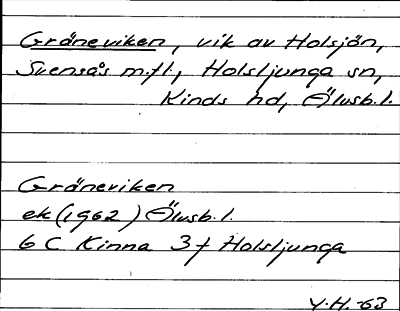 Gräneviken, vik av Holsjön,
Svensås m.fl., Holsljunga sn,
Kinds hd, Älvsb. l.
Gräneviken
ek (1962) Älvsb. l.
6 C Kinna 3 f Holsljunga
Y.H. -63